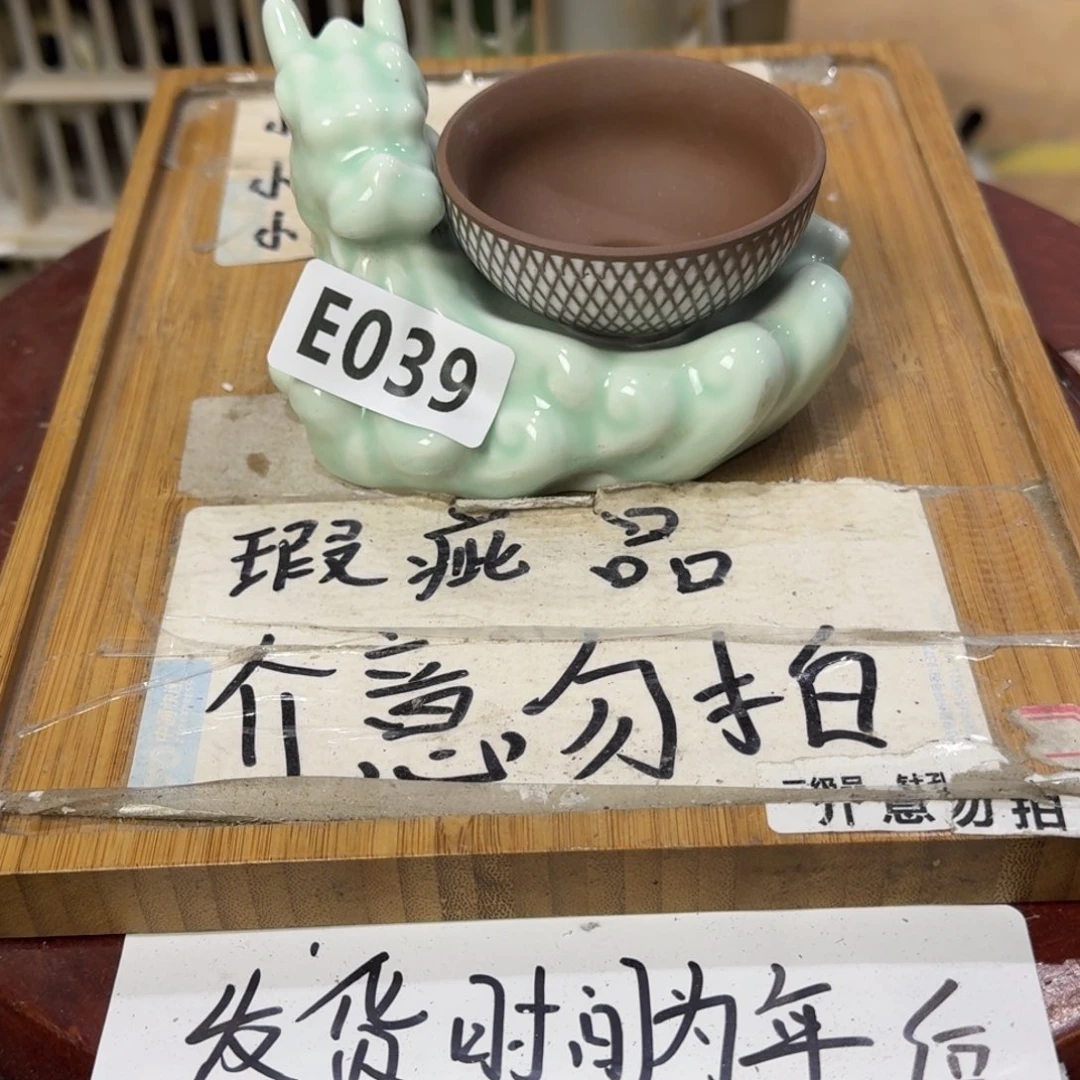 E039
瑕疵品
介意勿拍
介意勿拍
发货时间为年后